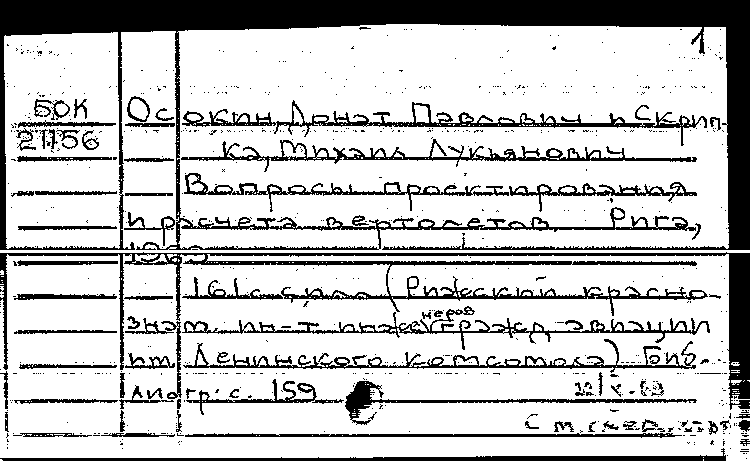 1
50К Осокин, Донат Павлович и Скрип-
21156 ка, Михаил Лукьянович
Вопросы проектирования
и расчета вертолетов. Рига,
1963
161 с. илл (Рижский красно-
знам. ин-т инженеров гражд. авиации
им. Ленинского комсомола) Биб-
лиогр: с. 159
С м.